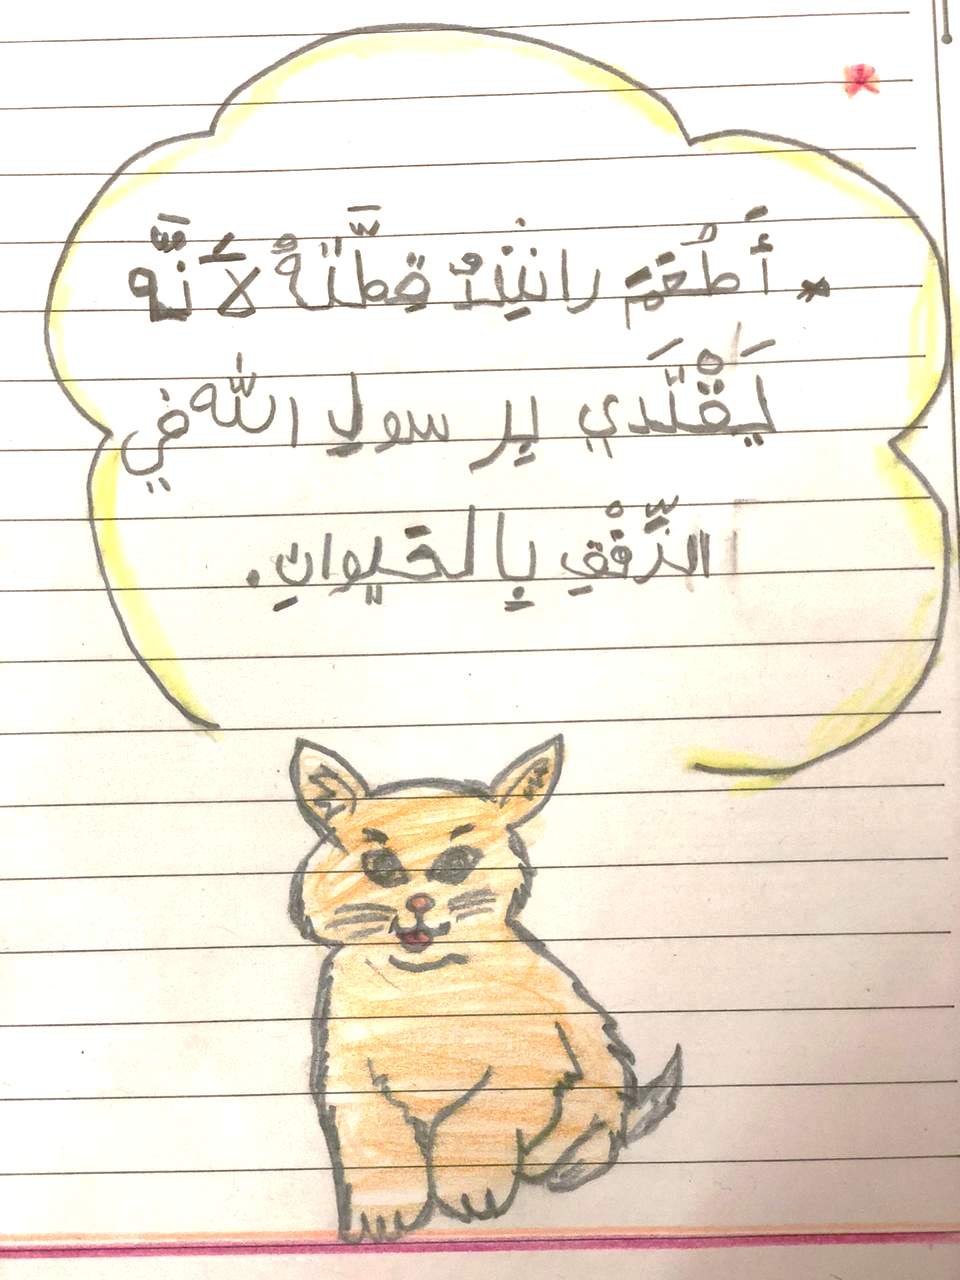 * أَطْعَمَ رانِيدُ قِطَّتَهُ لأَنَّه
لِيَقْتَدي بِر سولِ اللّٰه في
الرِّفْقِ بِالحَيوانِ.